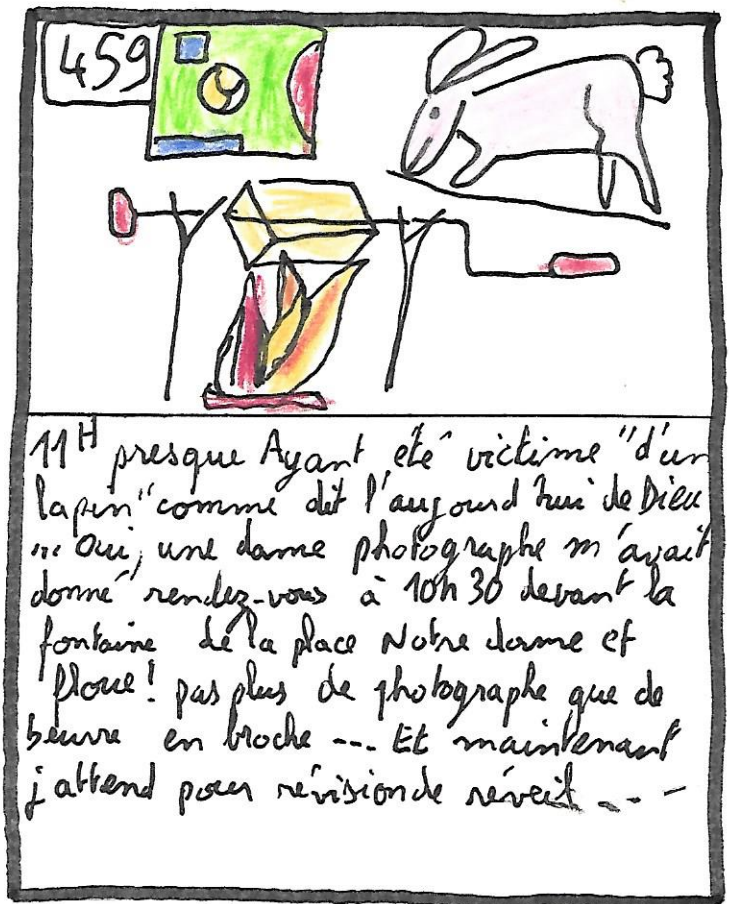 459
11H presque Ayant été victime "d'un
lapin" comme dit l'aujourd'hui de Dieu
... Oui, une dame photographe m'avait
donné rendez-vous à 10h30 devant la
fontaine de la place Notre dame et
Ploue! pas plus de photographe que de
beurre en broche ... Et maintenant
j'attend pour révision de réveil ...